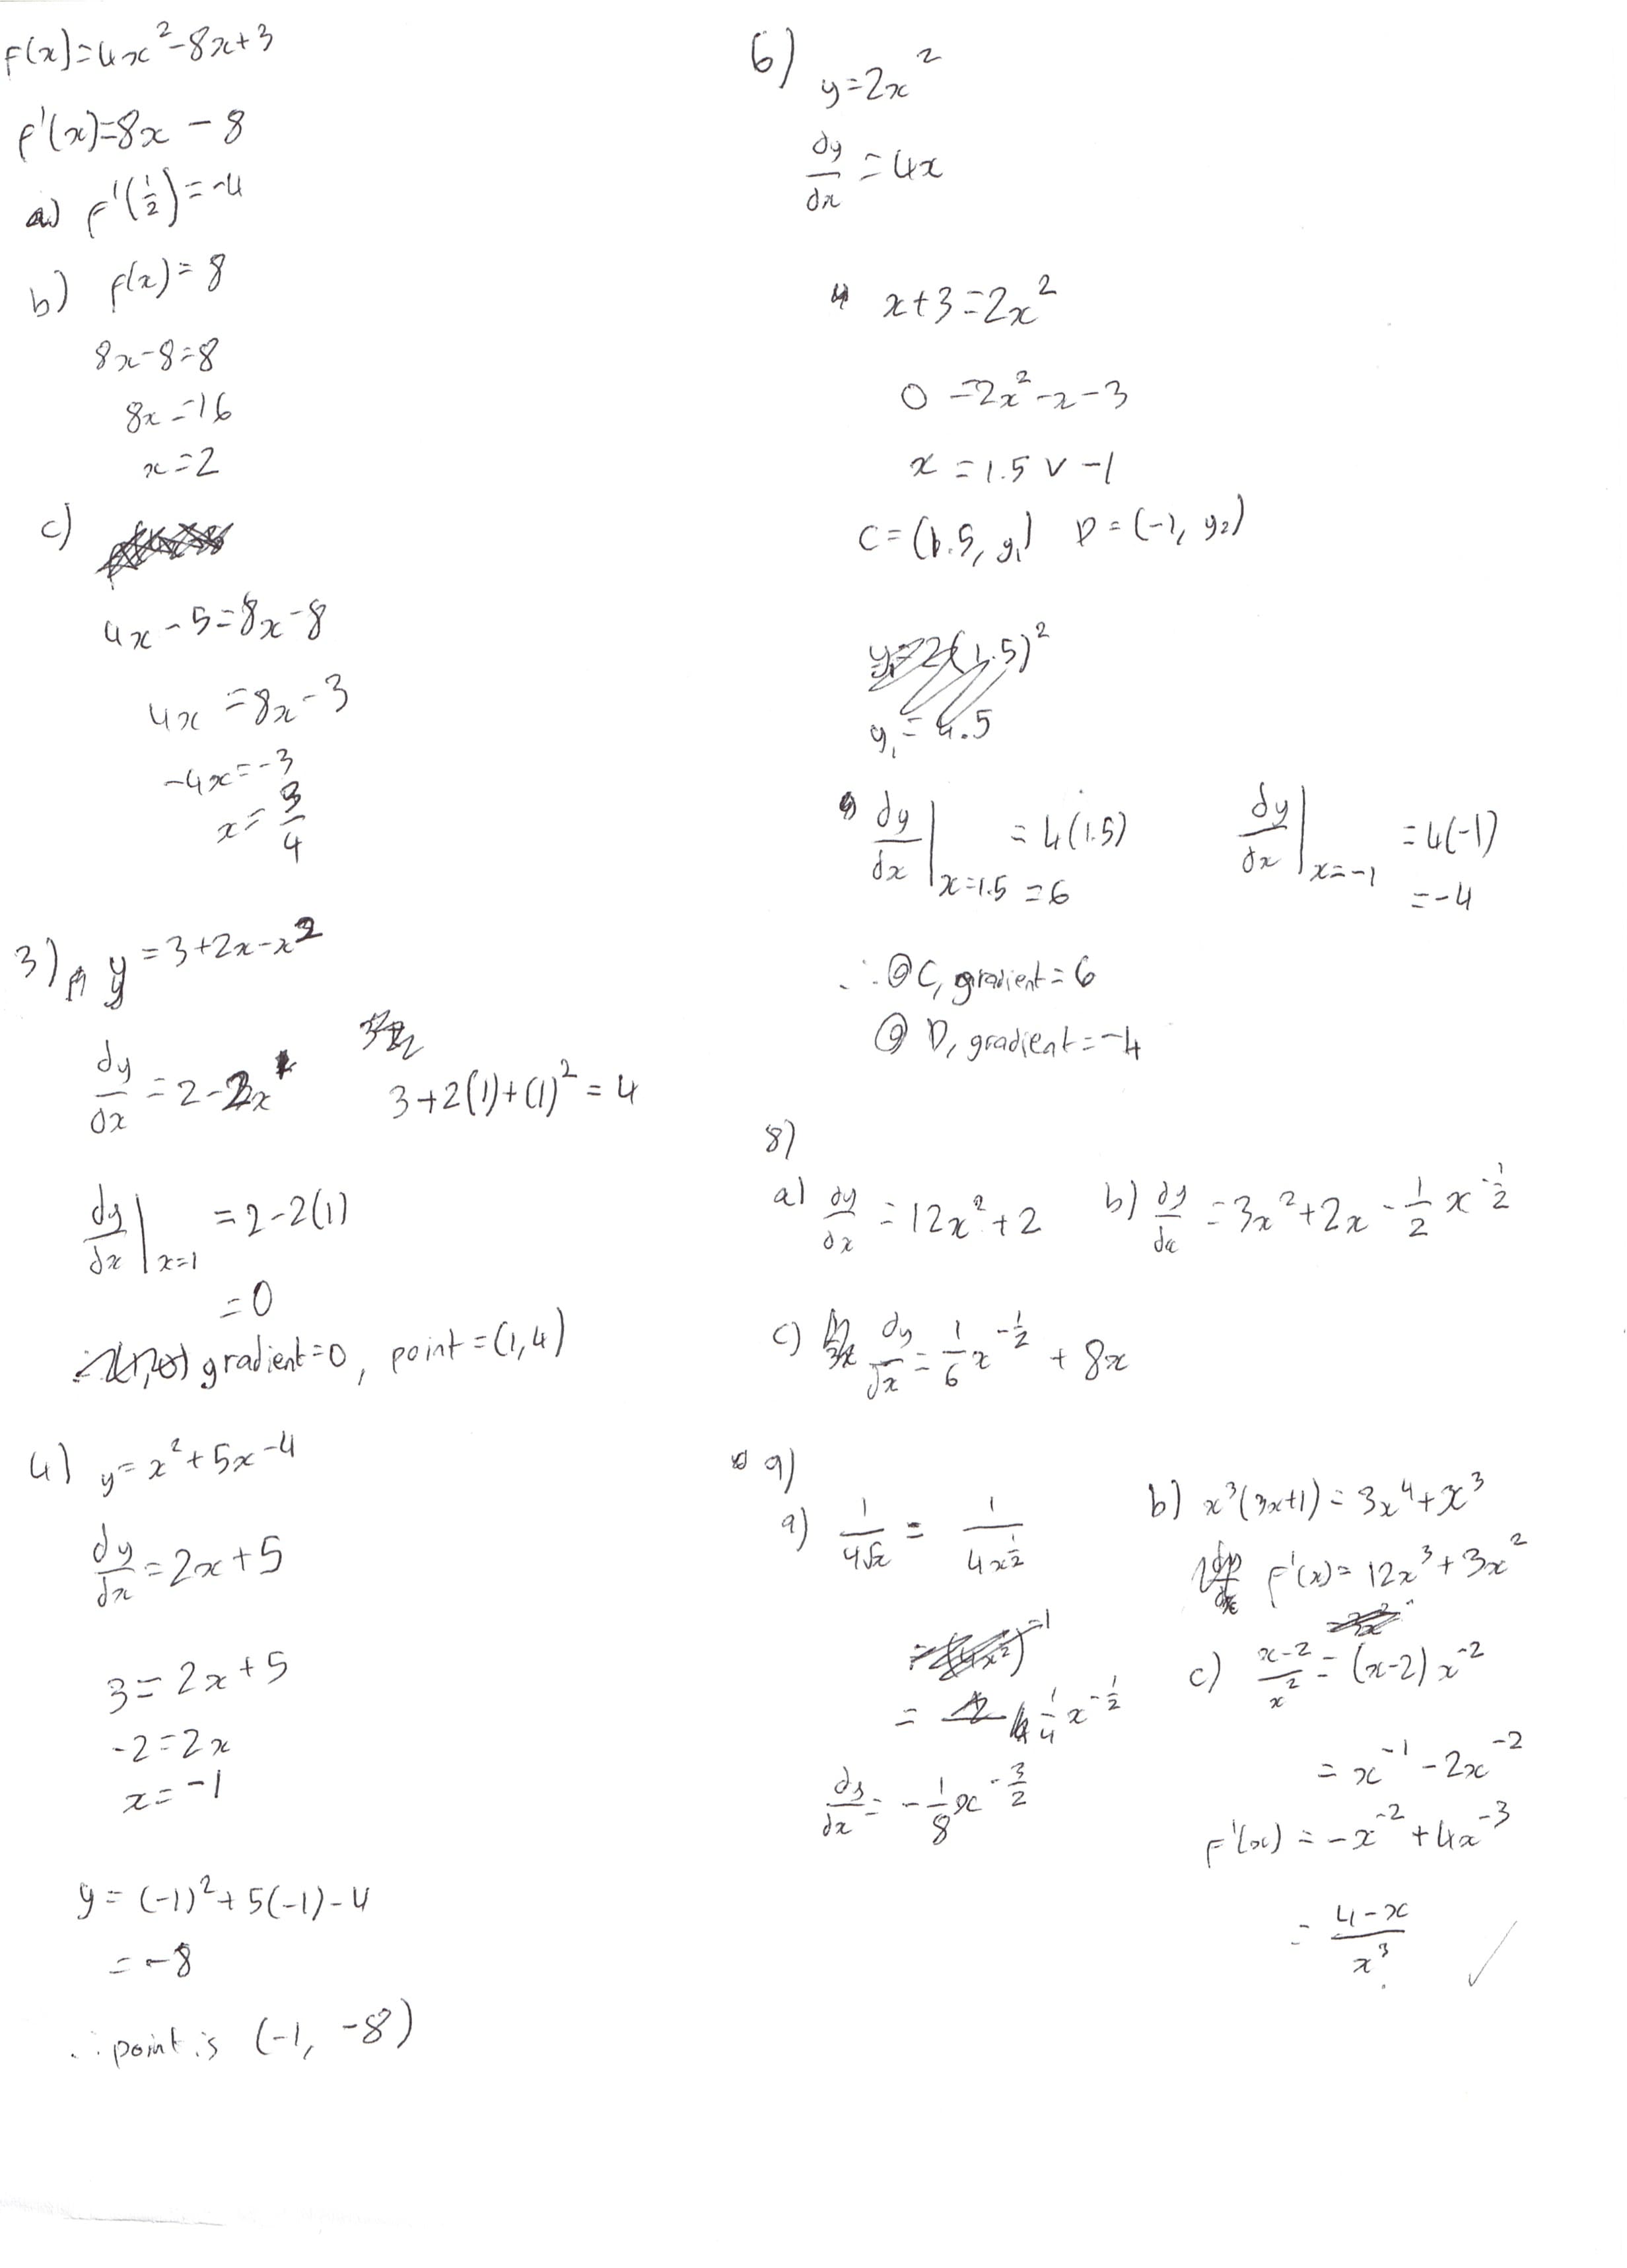 f(x)=4x²-8x+3
f'(x)=8x - 8
a) f'(1/2)=-4
b) f(x)= 8
8x-8=8
8x=16
x=2
c)
4x-5=8x-8
4x=8x-3
-4x=-3
x=3/4
3) y=3+2x-x²
dy/dx=2-2x
3+2(1)+(1)²=4
dy/dx|x=1 =2-2(1)
=0
gradient=0, point=(1,4)
4) y=x²+5x-4
dy/dx=2x+5
3=2x+5
-2=2x
x=-1
y=(-1)²+5(-1)-4
=-8
∴ point is (-1, -8)
6) y=2x²
dy/dx=4x
x+3=2x²
0=2x²-x-3
x=1.5 v -1
C=(1.5, y₁) D=(-1, y₂)
y₁=2(1.5)²
y₁=4.5
dy/dx|x=1.5 =4(1.5) dy/dx|x=-1 =4(-1)
=6 =-4
∴ @ C, gradient=6
@ D, gradient=-4
8)
a) dy/dx=12x²+2 b) dy/dx=3x²+2x-1/2x^-1/2
c) dy/dx=1/6x^-1/2+8x
9)
a) 1/4√x = 1/4x^1/2
= 1/4x^-1/2
dy/dx=-1/8x^-3/2
b) x³(3x+1)=3x⁴+x³
f'(x)=12x³+3x²
c) x-2/x²=(x-2)x⁻²
=x⁻¹-2x⁻²
f'(x)=-x⁻²+4x⁻³
=4-x/x³ ✓